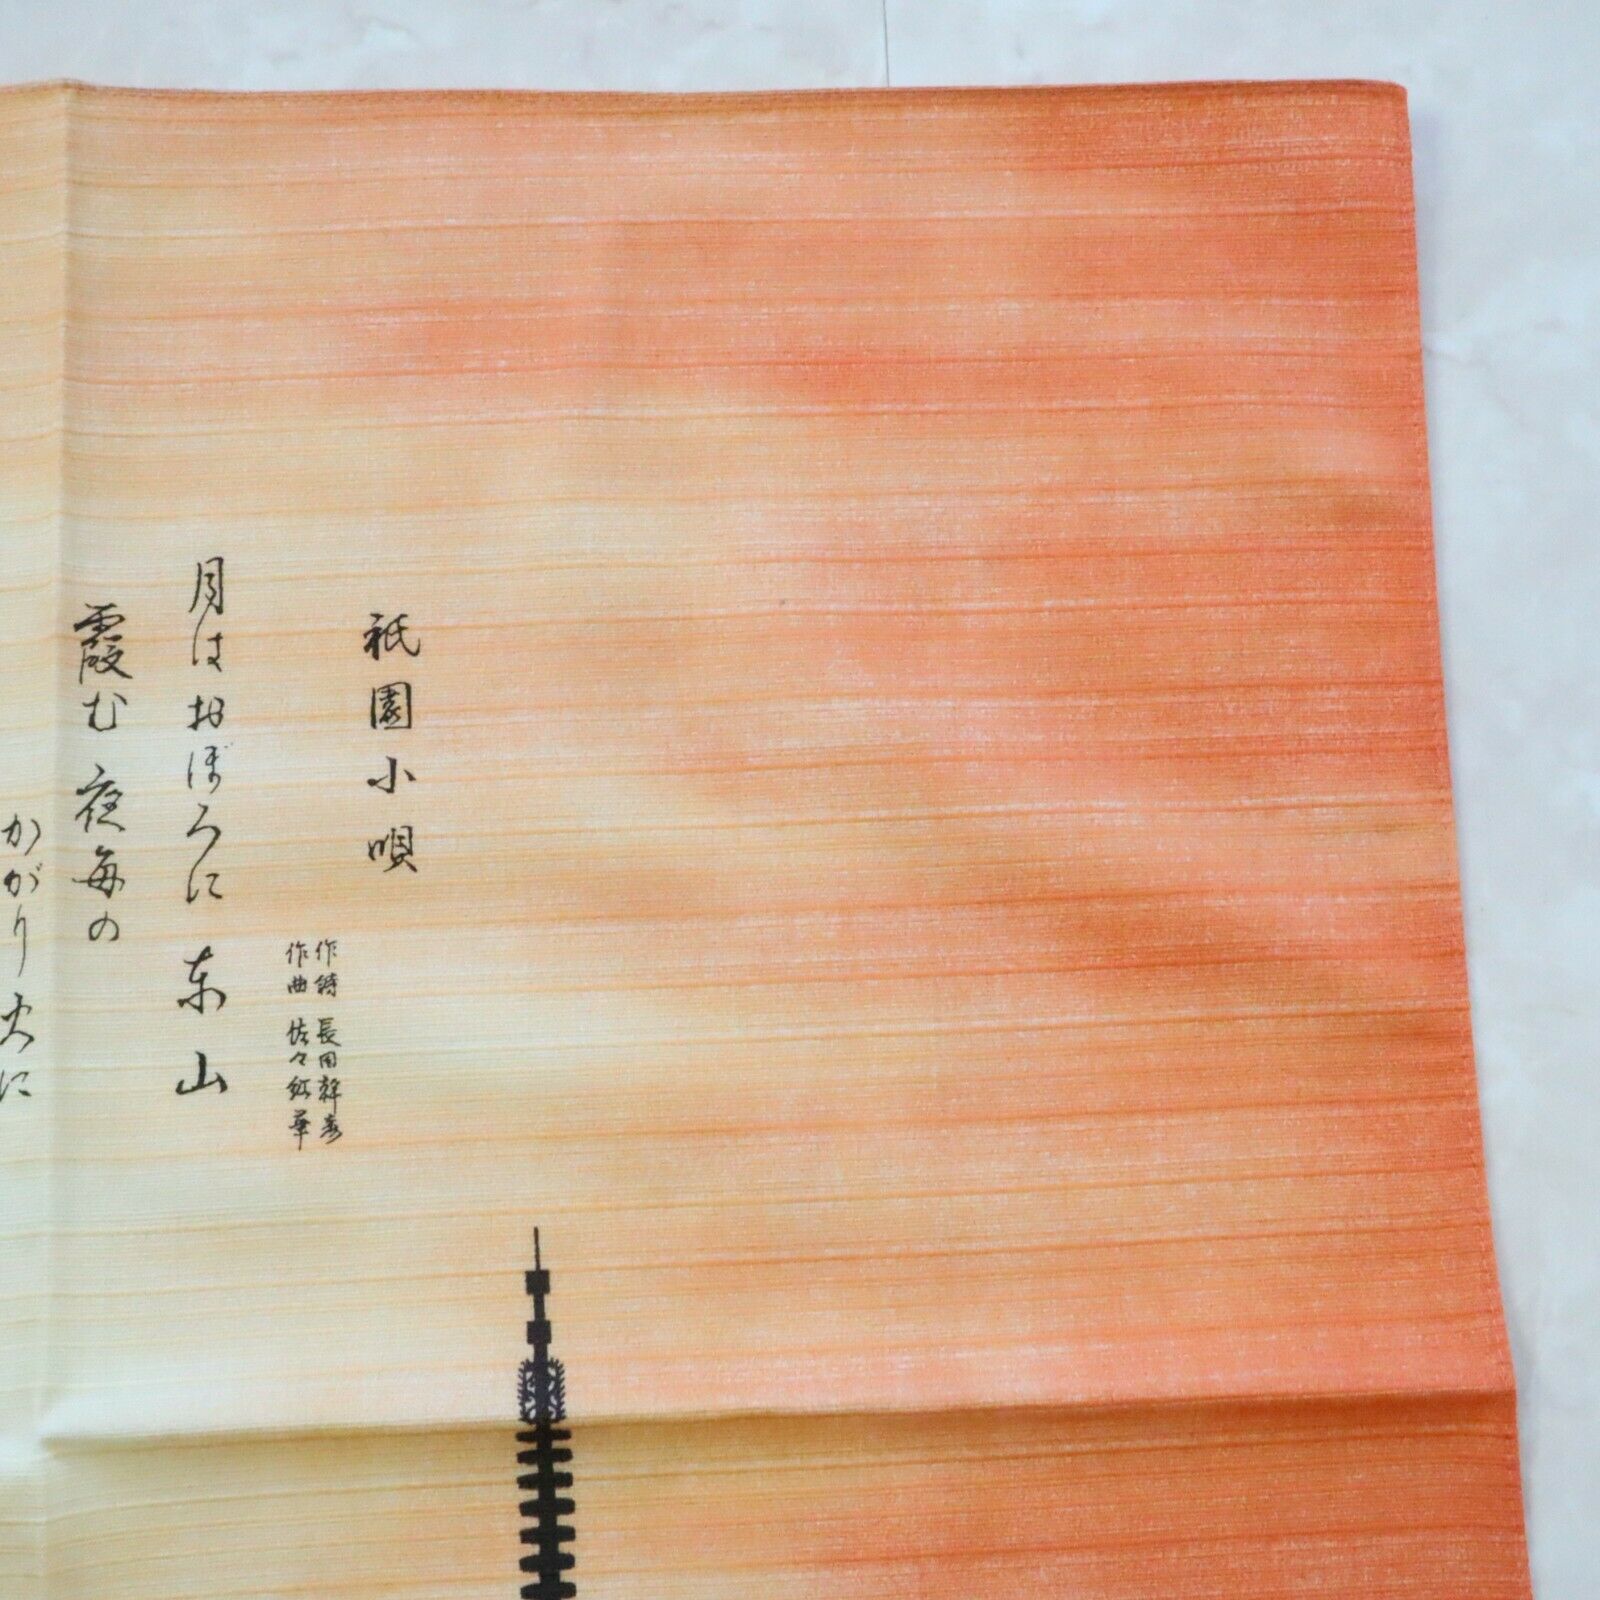 祇園小唄
作詩 長田幹彦
作曲 佐々紅華
月はおぼろに 東山
霞む 夜毎の
かがり火に